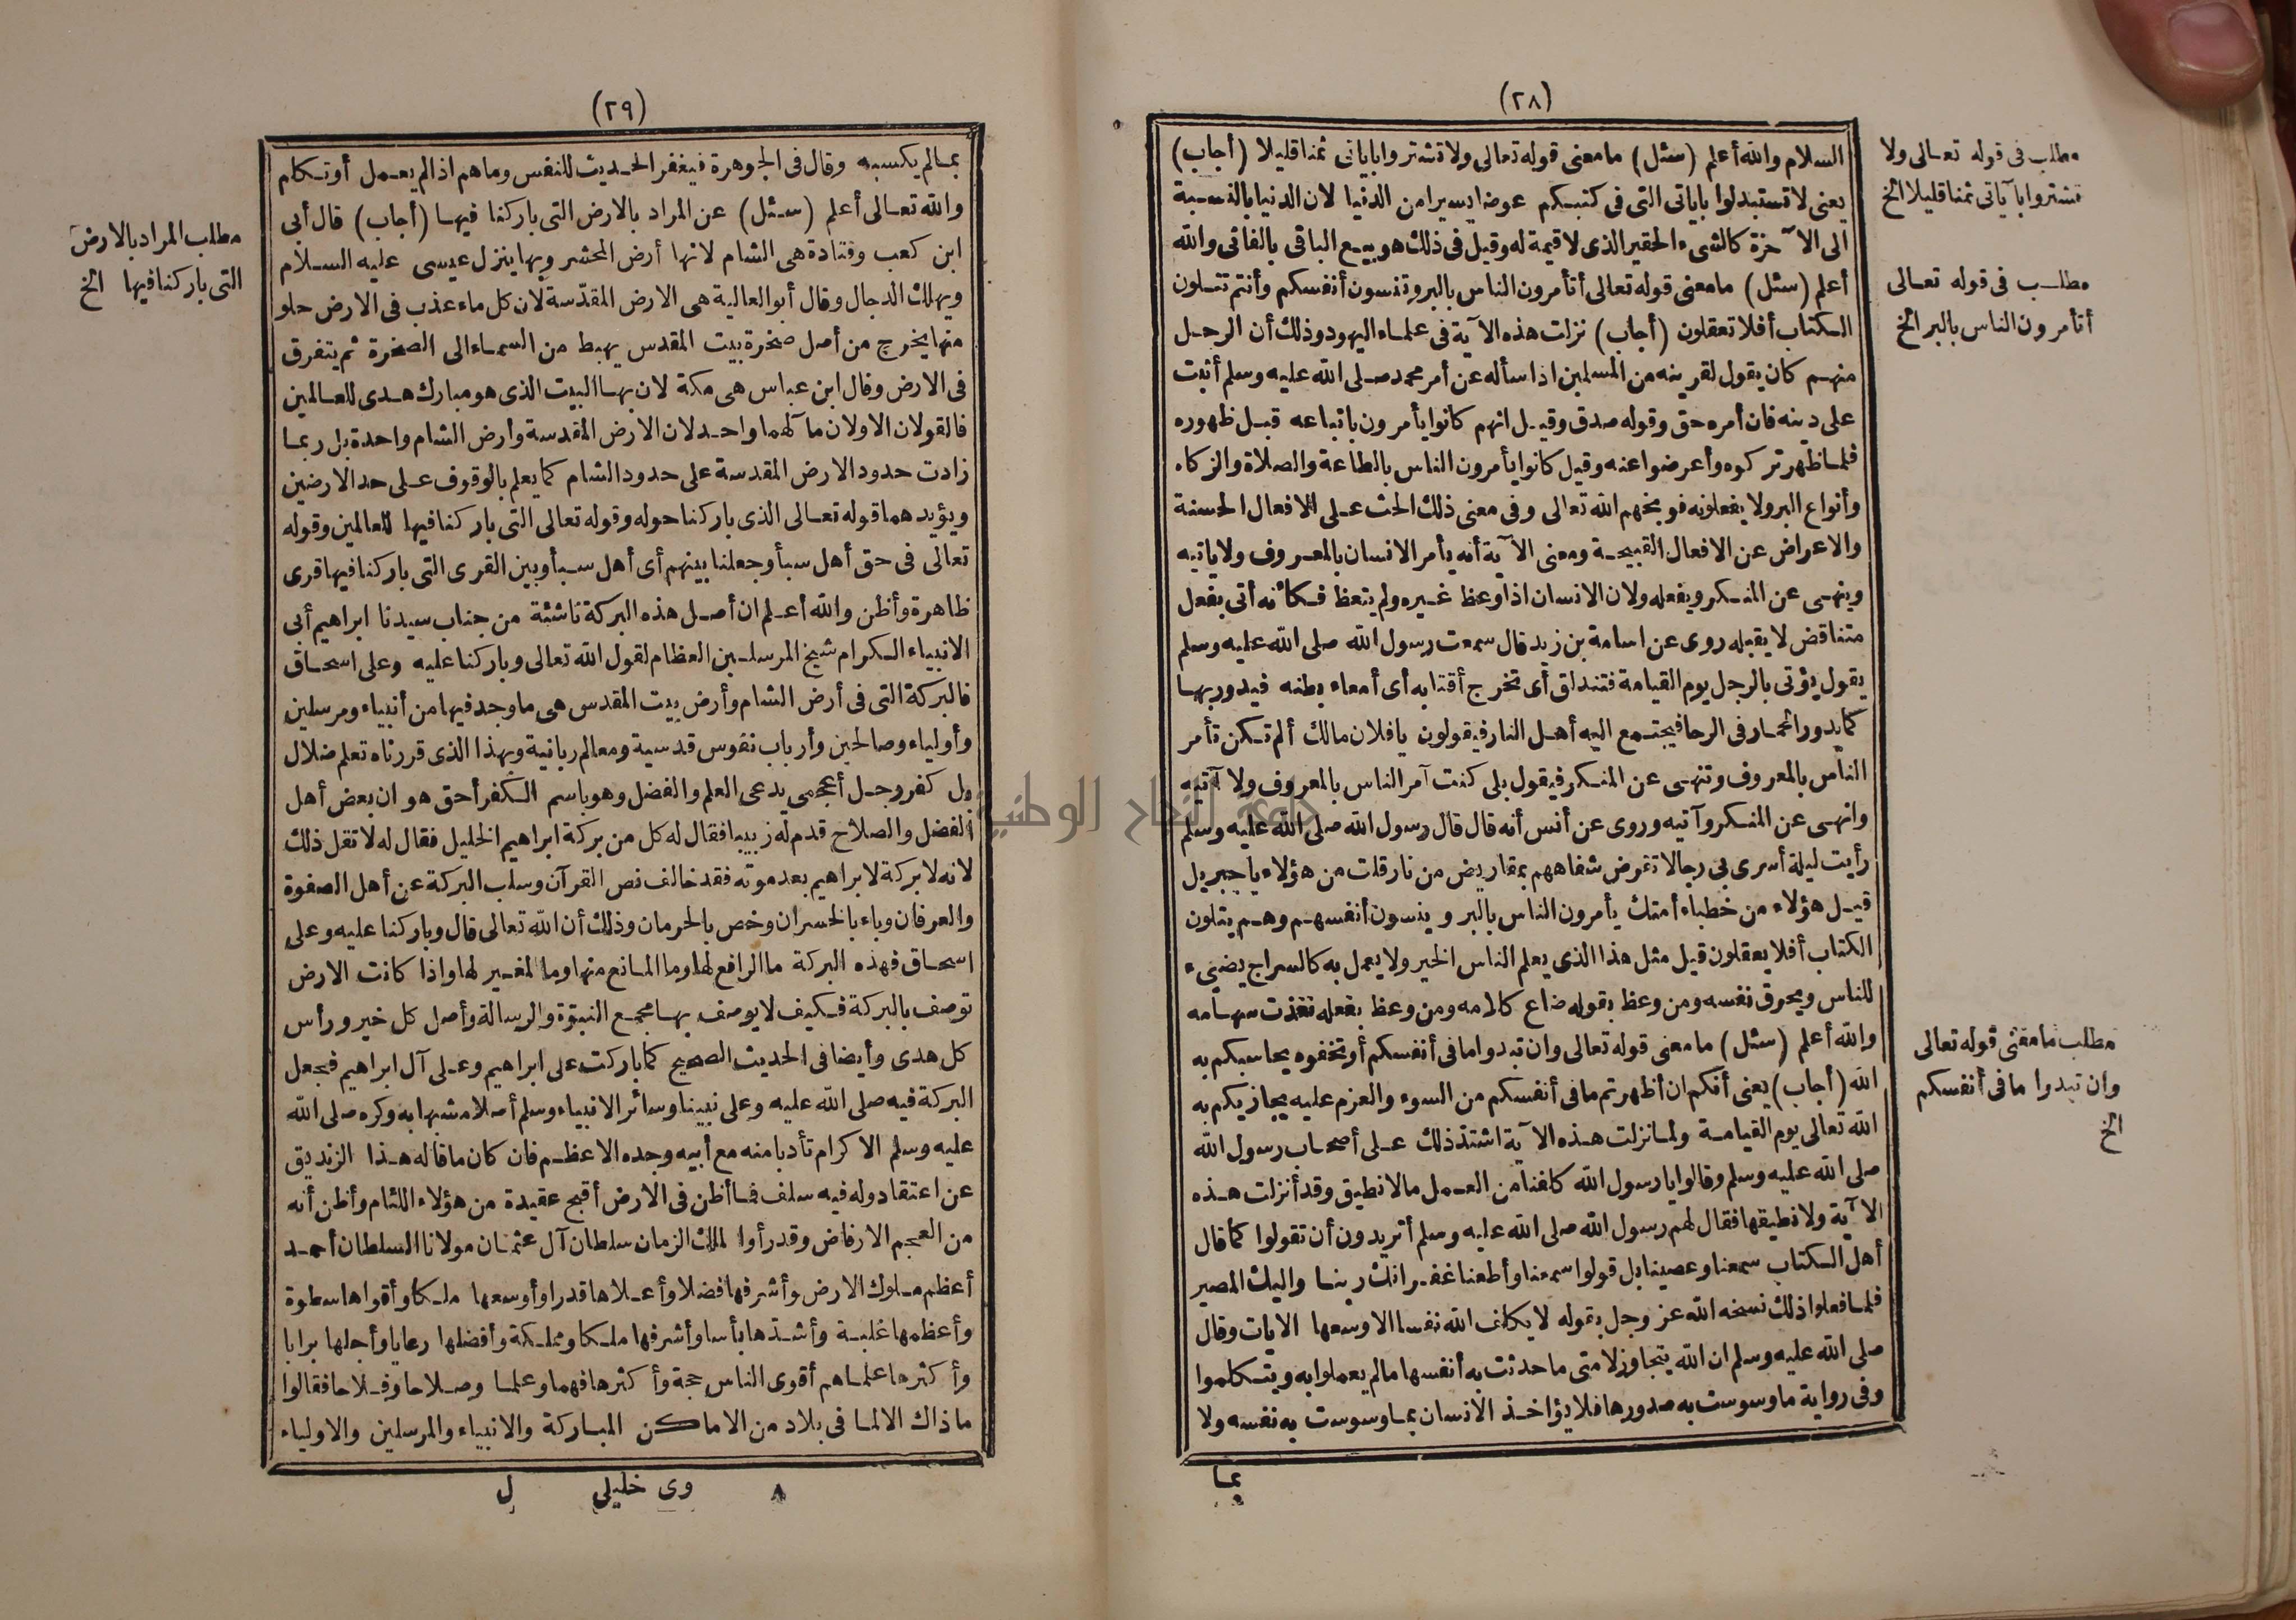 (٢٨)
السلام والله أعلم (سئل) ما معنى قوله تعالى ولا تشتروا باياتى ثمنا قليلا (أجاب)
يعنى لا تستبدلوا باياتى التى فى كتبكم عوضا يسيرا من الدنيا لان الدنيا بالنسبة
الى الآخرة كالشىء الحقير الذى لا قيمة له وقيل فى ذلك هو بيع الباقى بالفانى والله
أعلم (سئل) ما معنى قوله تعالى أتأمرون الناس بالبر وتنسون أنفسكم وأنتم تتلون
الكتاب أفلا تعقلون (أجاب) نزلت هذه الآية فى علماء اليهود وذلك أن الرجل
منهم كان يقول لقرينه من المسلمين اذا سأله عن أمر محمد صلى الله عليه وسلم أثبت
على دينه فان أمره حق وقوله صدق وقيل انهم كانوا يأمرون باتباعه قبل ظهوره
فلما ظهر تركوه وأعرضوا عنه وقيل كانوا يأمرون الناس بالطاعة والصلاة والزكاه
وأنواع البر ولا يفعلونه فوبخهم الله تعالى وفى معنى ذلك الحث على الافعال الحسنة
والاعراض عن الافعال القبيحة ومعنى الآية أنه يأمر الانسان بالمعروف ولا ياتيه
وينهى عن المنكر ويفعله ولان الانسان اذا وعظ غيره ولم يتعظ فكأنه أتى بفعل
متناقض لا يقبله روى عن اسامة بن زيد قال سمعت رسول الله صلى الله عليه وسلم
يقول يؤتى بالرجل يوم القيامة فتنداق أى تخرج أقتابه أى أمعاء بطنه فيدور بها
كما يدور الحمار فى الرحا فيجتمع اليه أهل النار فيقولون يا فلان مالك ألم تكن تأمر
الناس بالمعروف وتنهى عن المنكر فيقول بلى كنت آمر الناس بالمعروف ولا آتيه
وانهى عن المنكر وآتيه وروى عن أنس أنه قال قال رسول الله صلى الله عليه وسلم
رأيت ليلة أسرى بى رجالا تقرض شفاههم بمقاريض من نار قلت من هؤلاء يا جبريل
قيل هؤلاء من خطباء أمتك يأمرون الناس بالبر وينسون أنفسهم وهم يتلون
الكتاب أفلا يعقلون قيل مثل هذا الذى يعلم الناس الخير ولا يعمل به كالسراج يضىء
للناس ويحرق نفسه ومن وعظ بقوله ضاع كلامه ومن وعظ بفعله نفذت سهامه
والله أعلم (سئل) ما معنى قوله تعالى وان تبدوا ما فى أنفسكم أو تخفوه يحاسبكم به
الله (أجاب) يعنى أنكم ان أظهرتم ما فى أنفسكم من السوء والعزم عليه يجازيكم به
الله تعالى يوم القيامة ولما نزلت هذه الآية اشتد ذلك على أصحاب رسول الله
صلى الله عليه وسلم وقالوا يا رسول الله كلفنا من العمل ما لا نطيق وقد أنزلت هذه
الآية ولا نطيقها فقال لهم رسول الله صلى الله عليه وسلم أتريدون أن تقولوا كما قال
أهل الكتاب سمعنا وعصينا بل قولوا سمعنا وأطعنا غفرانك ربنا واليك المصير
فلما فعلوا ذلك نسخه الله عز وجل بقوله لا يكلف الله نفسا الا وسعها الايات وقال
صلى الله عليه وسلم ان الله يتجاوز لامتى ما حدثت به أنفسها ما لم يعملوا به ويتكلموا
وفى رواية ما وسوست به صدورها فلا يؤاخذ الانسان بما وسوست به نفسه ولا
بما
مطلب فى قوله تعالى ولا
تشتروا بآياتى ثمنا قليلا الخ
مطلب فى قوله تعالى
أتأمرون الناس بالبر الخ
مطلب ما معنى قوله تعالى
وان تبدوا ما فى أنفسكم
الخ
(٢٩)
بما لم يكسبه وقال فى الجوهرة فيغفر الحديث للنفس وما هم اذا لم يعمل أو تكلم
والله تعالى أعلم (سئل) عن المراد بالارض التى باركنا فيها (أجاب) قال أبى
ابن كعب وقتادة هى الشام لانها أرض المحشر وبها ينزل عيسى عليه السلام
ويهلك الدجال وقال أبو العالية هى الارض المقدسة لان كل ماء عذب فى الارض حلو
منها يخرج من أصل صخرة بيت المقدس يهبط من السماء الى الصخرة ثم يتفرق
فى الارض وقال ابن عباس هى مكة لان بها البيت الذى هو مبارك هدى للعالمين
فالقولان الاولان مآلهما واحد لان الارض المقدسة وأرض الشام واحدة بل ربما
زادت حدود الارض المقدسة على حدود الشام كما يعلم بالوقوف على حد الارضين
ويؤيدهما قوله تعالى الذى باركنا حوله وقوله تعالى التى باركنا فيها للعالمين وقوله
تعالى فى حق أهل سبأ وجعلنا بينهم أى أهل سبأ وبين القرى التى باركنا فيها قرى
ظاهرة وأظن والله أعلم ان أصل هذه البركة ناشئة من جناب سيدنا ابراهيم أبى
الانبياء الكرام شيخ المرسلين العظام لقول الله تعالى وباركنا عليه وعلى اسحاق
فالبركة التى فى أرض الشام وأرض بيت المقدس هى ما وجد فيها من أنبياء ومرسلين
وأولياء وصالحين وأرباب نفوس قدسية ومعالم ربانية وبهذا الذى قررناه تعلم ضلال
بل كفر رجل أعجمى يدعى العلم والفضل وهو باسم الكفر أحق هو ان بعض أهل
الفضل والصلاح قدم له زبيبا فقال له كل من بركة ابراهيم الخليل فقال له لا تقل ذلك
لانه لا بركة لابراهيم بعد موته فقد خالف نص القرآن وسلب البركة عن أهل الصفوة
والعرفان وباء بالخسران وخص بالحرمان وذلك أن الله تعالى قال وباركنا عليه وعلى
اسحاق فهذه البركة ما الرافع لها وما المانع منها وما المغير لها واذا كانت الارض
توصف بالبركة فكيف لا يوصف بها مجمع النبوة والرسالة وأصل كل خير ورأس
كل هدى وأيضا فى الحديث الصحيح كما باركت على ابراهيم وعلى آل ابراهيم فجعل
البركة فيه صلى الله عليه وعلى نبينا وسائر الانبياء وسلم أصلا مشبها به وكره صلى الله
عليه وسلم الاكرام تأدبا منه مع أبيه وجده الاعظم فان كان ما قاله هذا الزنديق
عن اعتقاد وله فيه سلف فما أظن فى الارض أقبح عقيدة من هؤلاء اللئام وأظن أنه
من العجم الارفاض وقد رأوا لملك الزمان سلطان آل عثمان مولانا السلطان أحمد
أعظم ملوك الارض وأشرفها فضلا وأعلاها قدرا وأوسعها ملكا وأقواها سطوة
وأعظمها غلبة وأشدها بأسا وأشرفها ملكا ومملكة وأفضلها رعايا وأجلها برايا
وأكثرها علماهم أقوى الناس حجة وأكثرها فهما وعلما وصلاحا وفلاحا فقالوا
ما ذاك الا لما فى بلاد من الاماكن المباركة والانبياء والمرسلين والاولياء
٨ وى خليلى ل
مطلب المراد بالارض
التى باركنا فيها الخ
جامعة النجاح الوطنية